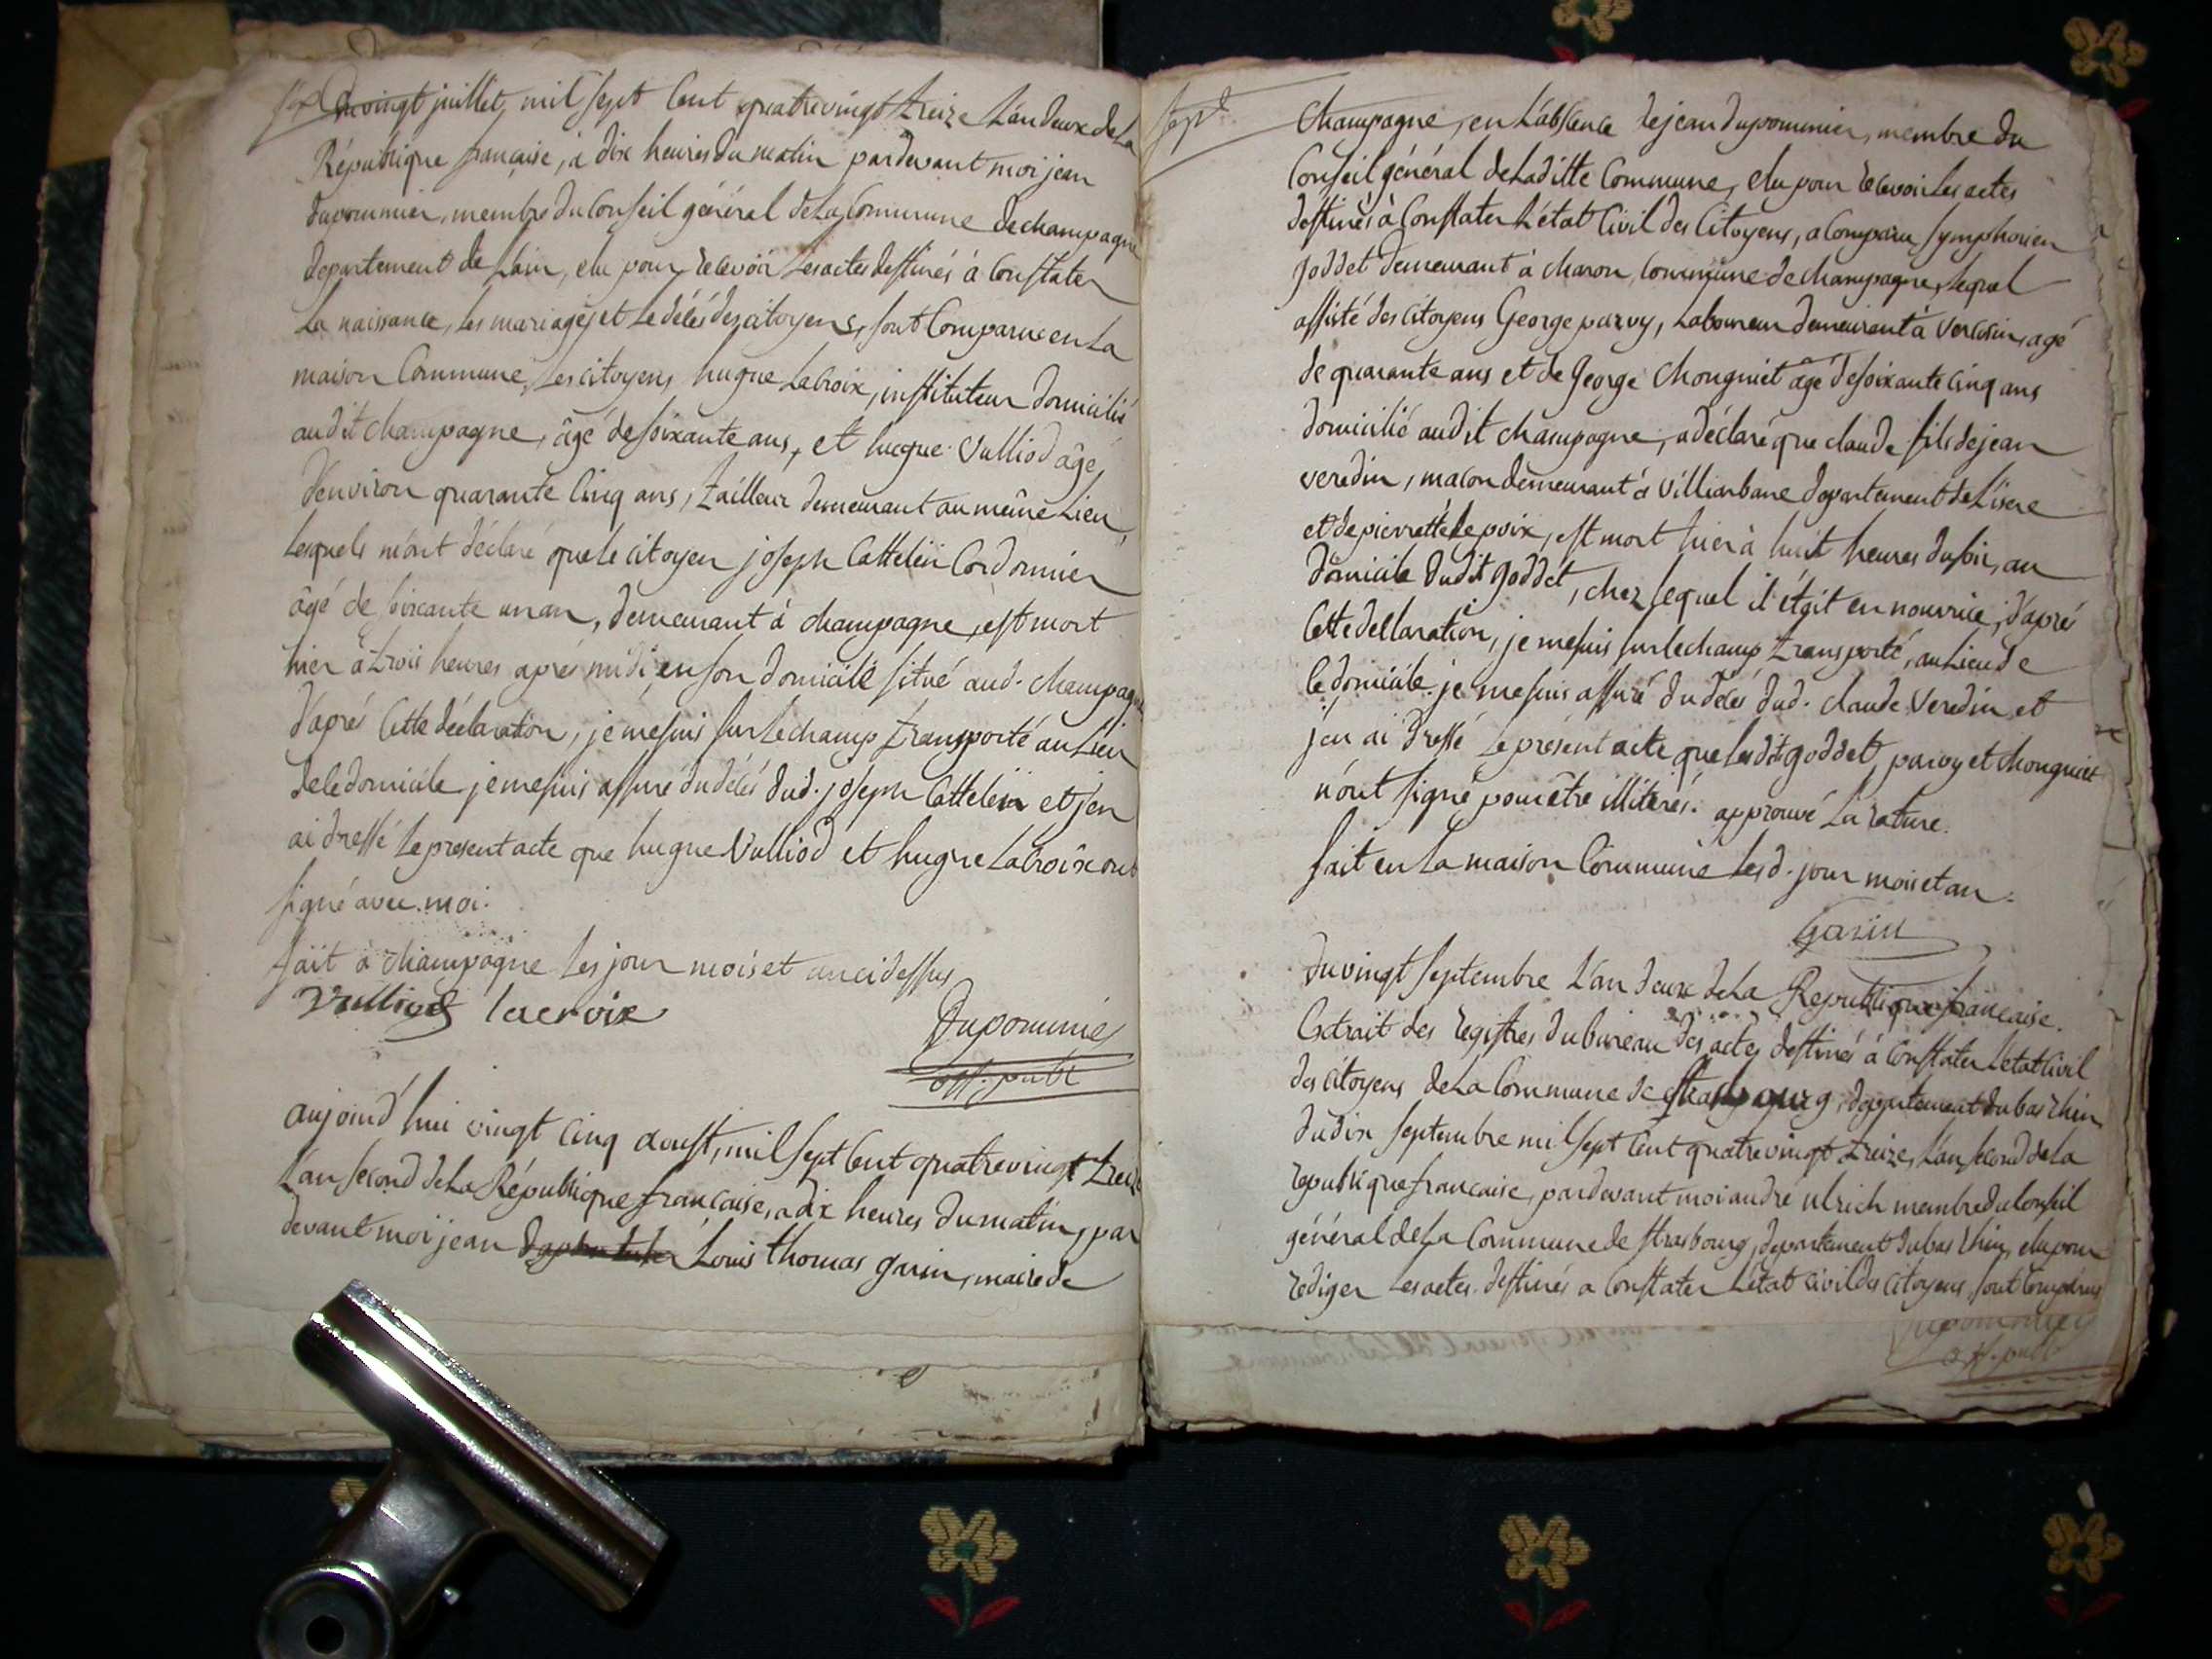 Du vingt juillet, mil sept Cent quatrevingt treize L'an deux de La
République française, à dix heures du matin pardevant moi jean
dupommier, membre du Conseil général de La Commune de champagne
departement de L'ain, elu pour recevoir Les actes destinés à Constater
La naissance, les mariages et Le délés des citoyens, sont Comparu en La
maison Commune, Les citoyens hugue LaCroix, instituteur domicilié
audit champagne, âgé de soixante ans, et hugue Vulliod âgé,
d'environ quarante Cinq ans, tailleur demeurant au même Lieu,
Lesquels m'ont déclaré que le citoyen joseph Cattelin Cordonnier
âgé de soixante un an, demeurant à champagne, est mort
hier à trois heures aprés midi, en son domicile situé aud. champagne
d'aprés Cette déclaration, je me suis sur Le champ transporté au Lieu
de le domicile je me suis assuré du délés dud. joseph Cattelin et j'en
ai dressé Le present acte que hugue Vulliod et hugue Lacroix ont
signé avec moi.
fait à champagne Les jour mois et an ci dessus
Vulliod lacroix
Dupommier
off. publ
aujourd'hui vingt Cinq aoust, mil sept Cent quatrevingt treize
L'an second de La République française, a dix heures du matin, par
devant moi jean Louis thomas garin, maire de
sept
Champagne, en L'absence de jean dupommier, membre du
Conseil général de Laditte Commune, elu pour recevoir Les actes
destinés à Constater L'état Civil des Citoyens, a Comparu symphorien
goddet demeurant à charon, Commune de champagne, lequel
assisté des citoyens George parvy, Laboureur demeurant à vercosin, agé
de quarante ans et de George Chongniet agé de soixante Cinq ans
domicilié audit champagne, a déclaré que claude fils de jean
veredin, macon demeurant à Villiarbane departement de L'isere
et de pierrette Lepoix, est mort hier à huit heures du soir, au
domicile dudit goddet, chez lequel il étoit en nourrice, d'aprés
Cette dellaration, je me suis sur le champ transporté, au Lieu de
le domicile. je me suis assuré du délés dud. claude Veredin et
j'en ai dressé Le présent acte que Lesdits goddet, parvy et Chongniet
n'ont signé pour être illiterés. approuvé La rature.
fait en La maison Commune Lesd. jour mois et an.
Garin
du vingt septembre L'an deux de La Republique francaise.
Extrait des registres du bureau des actes destinés à Constater L'etat Civil
des citoyens de La Commune de strasbourg, departement du bas rhin
du dix septembre mil sept Cent quatrevingt treize, L'an second de La
republique francaise, pardevant moi andré ulrich membre du Conseil
général de La Commune de strasbourg, departement du bas rhin, elu pour
rediger Les actes destinés a Constater L'état civil des citoyens, sont Comparus
Dupommier
off. publ